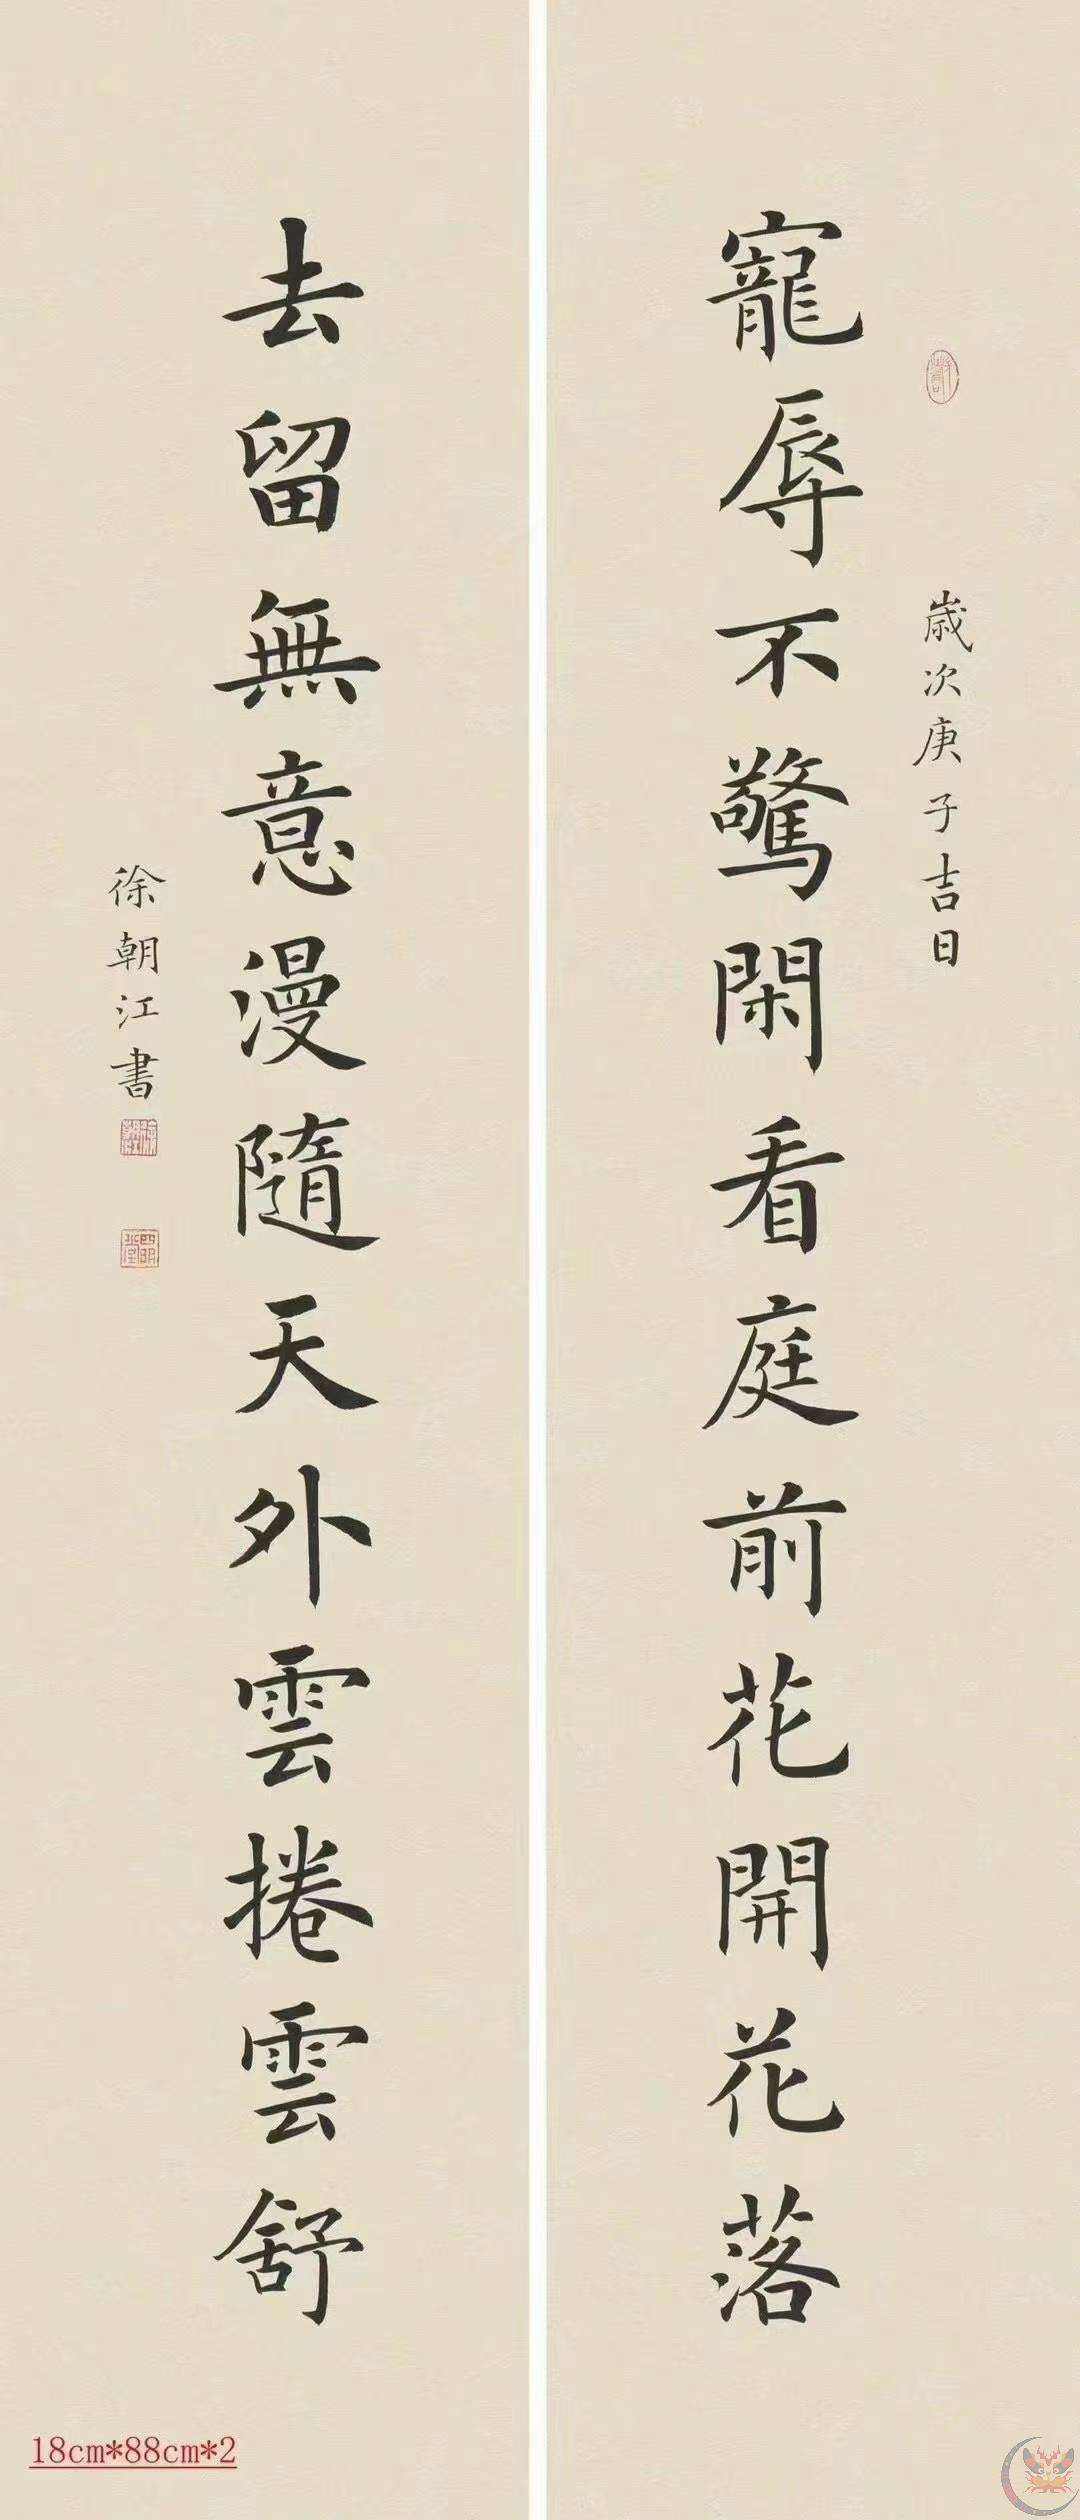 歲次庚子吉日
寵辱不驚閑看庭前花開花落
去留無意漫隨天外雲捲雲舒
徐朝江書
18cm*88cm*2